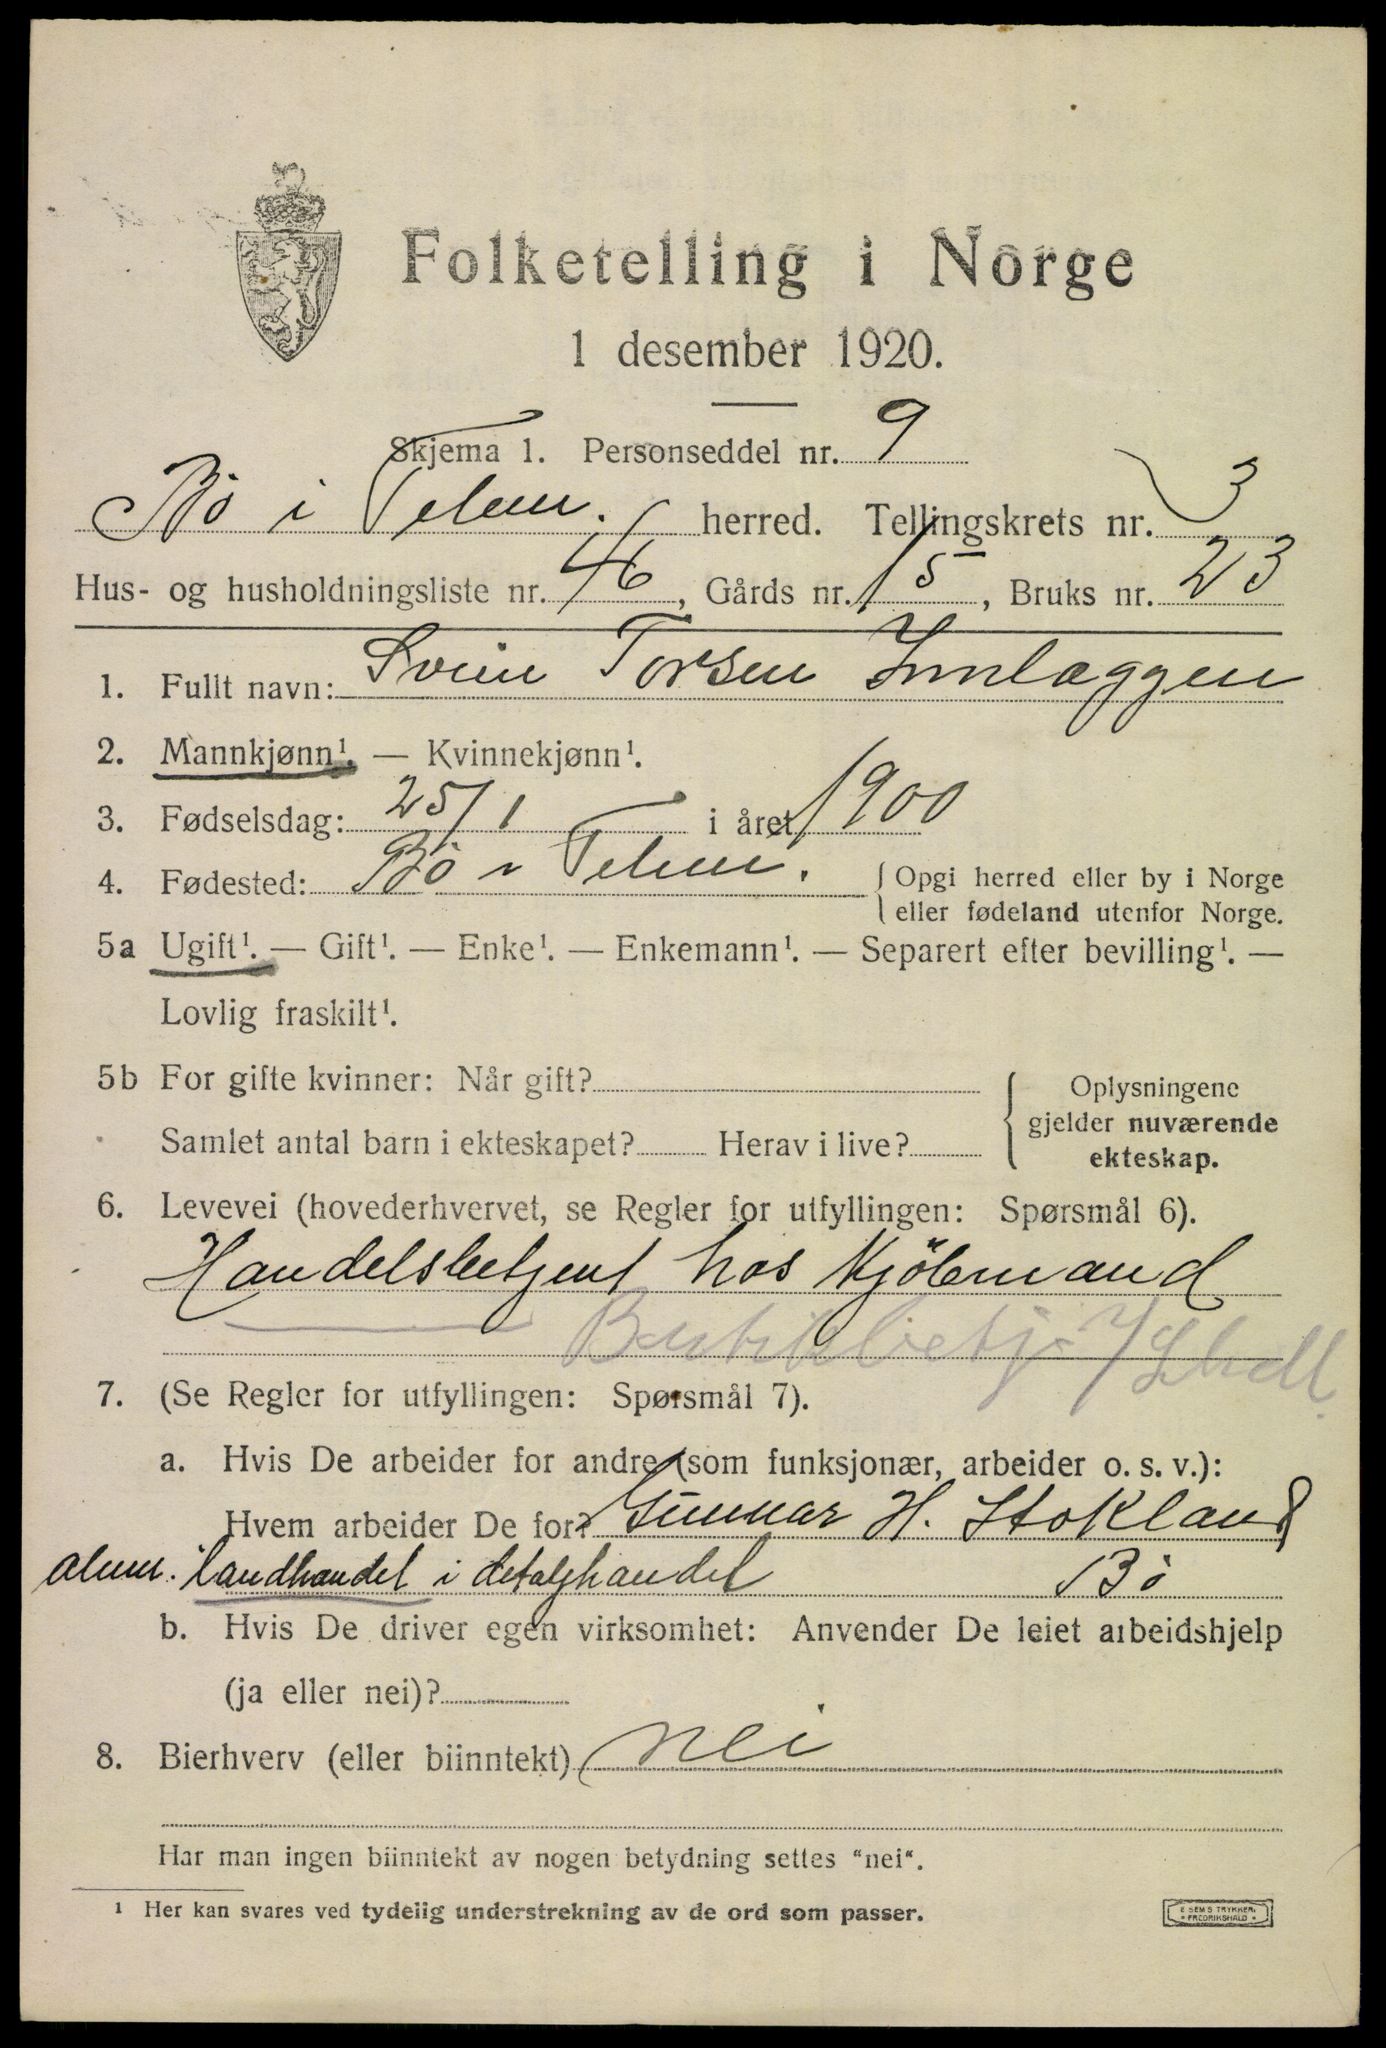 Folketelling i Norge
1 desember 1920.
Skjema 1. Personseddel nr. 9
Bö i Telem. herred. Tellingskrets nr. 3
Hus- og husholdningsliste nr. 46, Gårds nr. 15, Bruks nr. 23
1. Fullt navn: Svein Torsen Innlæggen
2. Mannkjønn¹. — Kvinnekjønn¹.
3. Fødselsdag: 25/1 i året 1900
4. Fødested: Bö i Telem. { Opgi herred eller by i Norge
eller fødeland utenfor Norge.
5a Ugift¹. — Gift¹. — Enke¹. — Enkemann¹. — Separert efter bevilling¹. —
Lovlig fraskilt¹.
5b For gifte kvinner: Når gift? { Oplysningene
gjelder nuværende
Samlet antal barn i ekteskapet? Herav i live?
ekteskap.
6. Levevei (hovederhvervet, se Regler for utfyllingen: Spørsmål 6).
Handelsbetjent hos Kjöbmand
7. (Se Regler for utfyllingen: Spørsmål 7).
a. Hvis De arbeider for andre (som funksjonær, arbeider o. s. v.):
Hvem arbeider De for? Gunnar H. Stokland
alm. landhandel i detaljhandel Bö
b. Hvis De driver egen virksomhet: Anvender De leiet arbeidshjelp
(ja eller nei)?
8. Bierhverv (eller biinntekt) nei
Har man ingen biinntekt av nogen betydning settes "nei".
¹ Her kan svares ved tydelig understrekning av de ord som passer.
E SEMS TRYKKERI
FREDRIKSHALD